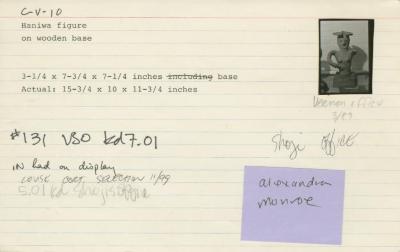 C-V-10
Haniwa figure
on wooden base
3-1/4 x 7-3/4 x 7-1/4 inches including base
Actual: 15-3/4 x 10 x 11-3/4 inches
office
3/89
#131 VSO kd 7.01
Shoji OFFICE
IN had on display
SELECTION 11/99
5.01 kd Shoji's office
alexandra
monroe